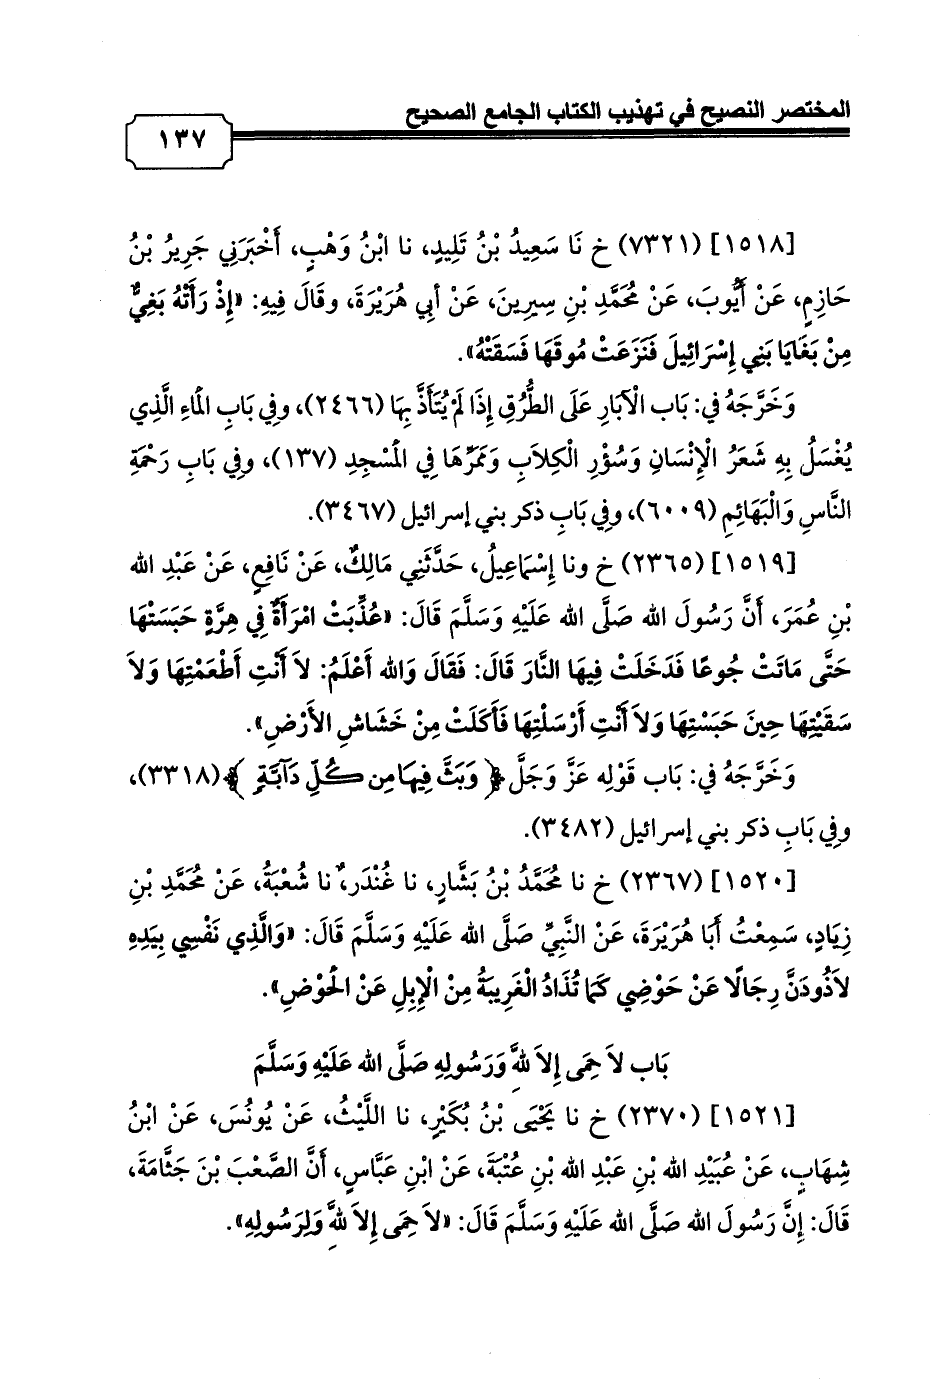 المختصر النصيح في تهذيب الكتاب الجامع الصحيح
١٣٧
[١٥١٨] (٧٣٢١) خ نَا سَعِيدُ بْنُ تَلِيدٍ، نا ابْنُ وَهْبٍ، أَخْبَرَنِي جَرِيرُ بْنُ
حَازِمٍ، عَنْ أَيُّوبَ، عَنْ مُحَمَّدِ بْنِ سِيرِينَ، عَنْ أَبِي هُرَيْرَةَ، وقَالَ فِيهِ: «إِذْ رَأَتْهُ بَغِيٌّ
مِنْ بَغَايَا بَنِي إِسْرَائِيلَ فَنَزَعَتْ مُوقَهَا فَسَقَتْهُ».
وَخَرَّجَهُ في: بَاب الْآبَارِ عَلَى الطُّرُقِ إِذَا لَمْ يُتَأَذَّ بِهَا (٢٤٦٦)، وفِي بَابِ المْاءِ الَّذِي
يُغْسَلُ بِهِ شَعَرُ الْإِنْسَانِ وَسُؤْرِ الْكِلاَبِ وَمَمَرِّهَا فِي المَسْجِدِ (١٣٧)، وفِي بَابِ رَحْمَةِ
النَّاسِ وَالْبَهَائِمِ (٦٠٠٩)، وفِي بَابِ ذكر بني إسرائيل (٣٤٦٧).
[١٥١٩] (٢٣٦٥) خ ونا إِسْمَاعِيلُ، حَدَّثَنِي مَالِكٌ، عَنْ نَافِعٍ، عَنْ عَبْدِ الله
بْنِ عُمَرَ، أَنَّ رَسُولَ الله صَلَّى الله عَلَيْهِ وَسَلَّمَ قَالَ: «عُذِّبَتْ امْرَأَةٌ فِي هِرَّةٍ حَبَسَتْهَا
حَتَّى مَاتَتْ جُوعًا فَدَخَلَتْ فِيهَا النَّارَ قَالَ: فَقَالَ وَالله أَعْلَمُ: لاَ أَنْتِ أَطْعَمْتِهَا وَلاَ
سَقَيْتِهَا حِينَ حَبَسْتِهَا وَلاَ أَنْتِ أَرْسَلْتِهَا فَأَكَلَتْ مِنْ خَشَاشِ الأَرْضِ».
وَخَرَّجَهُ في: بَاب قَوْلِه عَزَّ وَجَلَّ ﴿وَبَثَّ فِيهَا مِن كُلِّ دَآبَّةٍ﴾ (٣٣١٨)،
وفِي بَابِ ذكر بني إسرائيل (٣٤٨٢).
[١٥٢٠] (٢٣٦٧) خ نا مُحَمَّدُ بْنُ بَشَّارٍ، نا غُنْدَرٌ، نا شُعْبَةُ، عَنْ مُحَمَّدِ بْنِ
زِيَادٍ، سَمِعْتُ أَبَا هُرَيْرَةَ، عَنْ النَّبِيِّ صَلَّى الله عَلَيْهِ وَسَلَّمَ قَالَ: «وَالَّذِي نَفْسِي بِيَدِهِ
لاَذُودَنَّ رِجَالًا عَنْ حَوْضِي كَمَا تُذَادُ الْغَرِيبَةُ مِنْ الْإِبِلِ عَنْ الحَوْضِ».
بَاب لاَ حِمَى إِلاَ للهَّ وَرَسُولِهِ صَلَّى الله عَلَيْهِ وَسَلَّمَ
[١٥٢١] (٢٣٧٠) خ نا يَحْيَى بْنُ بُكَيْرٍ، نا اللَّيْثُ، عَنْ يُونُسَ، عَنْ ابْنُ
شِهَابٍ، عَنْ عُبَيْدِ الله بْنِ عَبْدِ الله بْنِ عُتْبَةَ، عَنْ ابْنِ عَبَّاسٍ، أَنَّ الصَّعْبَ بْنَ جَثَّامَةَ،
قَالَ: إِنَّ رَسُولَ الله صَلَّى الله عَلَيْهِ وَسَلَّمَ قَالَ: «لاَ حِمَى إِلاَ للهَّ وَلِرَسُولِهِ».